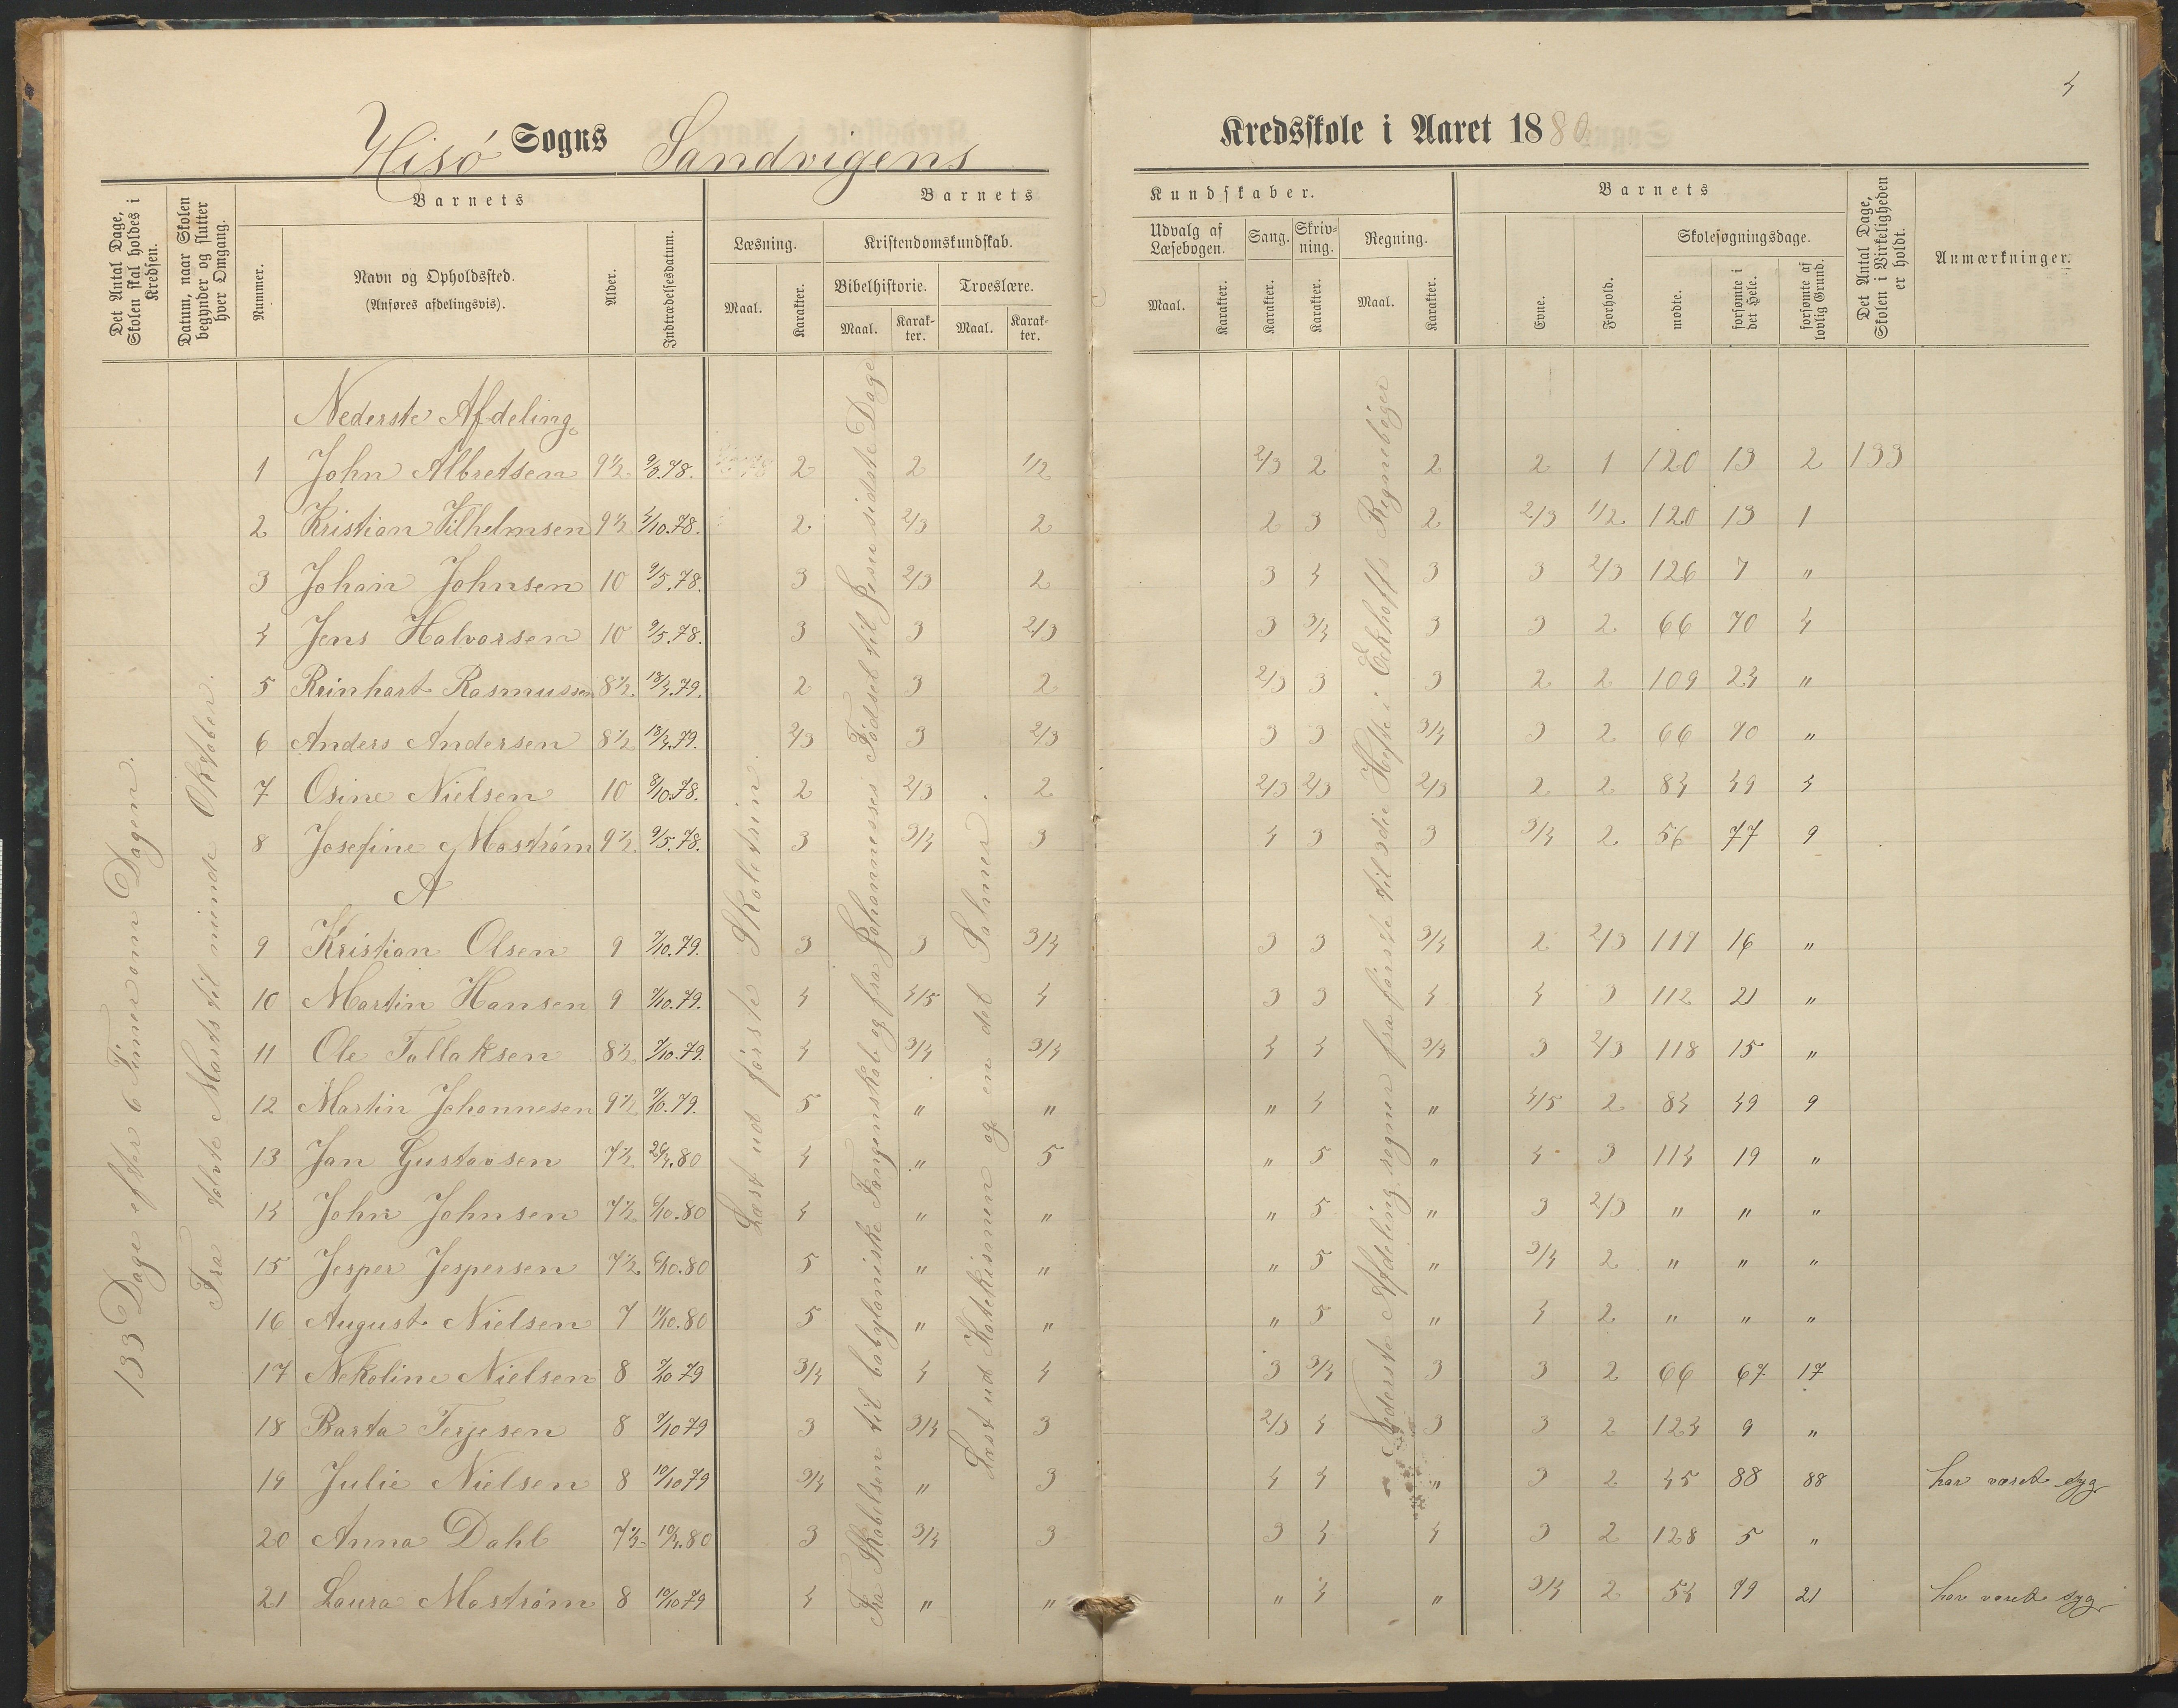 4
Hisö Sogns Sandvigens Kredsskole i Aaret 1880
Det Antal Dage, Skolen skal holdes i Kredsen.
Datum, naar Skolen begynder og slutter hver Omgang.
Barnets
Nummer.
Navn og Opholdssted.
(Anføres afdelingsvis).
Alder.
Indtrædelsesdatum.
Barnets Kundskaber.
Læsning.
Maal.
Karakter.
Kristendomskundskab.
Bibelhistorie.
Maal.
Karakter.
Troeslære.
Maal.
Karakter.
Udvalg af Læsebogen.
Maal.
Karakter.
Sang.
Karakter.
Skrivning.
Karakter.
Regning.
Maal.
Karakter.
Barnets
Evne.
Forhold.
Skolesøgningsdage.
mødte.
forsømte i det Hele.
forsømte af lovlig Grund.
Det Antal Dage, Skolen i Virkeligheden er holdt.
Anmærkninger.
133 Dage efter 6 Timer om Dagen.
Fra tolvte Marts til niende Oktober.
Læst ud förste Skoletrin.
Fra Skabelsen til babyloniske Fangenskab og fra Johannesses Födsel til Jesu sidste Dage
Læst ud Katekismen og en del Salmer.
Nederste Afdeling regner fra förste til 3die Hefte i Eckhoffs Regneböger
Nederste Afdeling.
1 John Albretsen 9½ 9/5.78. 2 2 1/2 2/3 2 2 2 1 120 13 2 133
2 Kristian Vilhelmsen 9½ 4/10.78. 2 2/3 2 2 3 2 2/3 1/2 120 13 1
3 Johan Johnsen 10 9/5.78. 3 2/3 2 3 4 3 3 2/3 126 7 "
4 Jens Halvorsen 10 9/5.78. 3 3 2/3 3 3/4 3 3 2 66 70 4
5 Reinhart Rasmussen 8½ 18/4.79. 2 3 2 2/3 3 3 2 2 109 24 "
6 Anders Andersen 8½ 18/4.79. 2/3 3 2/3 3 3 3/4 3 2 66 70 "
7 Osine Nielsen 10 8/10.78. 2 2/3 2 2/3 2/3 2/3 2 2 84 49 4
8 Josefine Mostrøm 9½ 9/5.78. 3 3/4 3 4 3 3 3/4 2 56 77 9
A
9 Kristian Olsen 9 7/10.79. 3 3 3/4 3 3 3/4 2 2/3 117 16 "
10 Martin Hansen 9 7/10.79. 4 4/5 4 3 3 4 4 3 112 21 "
11 Ole Tallaksen 8½ 7/10.79. 4 3/4 3/4 4 4 3/4 3 2/3 118 15 "
12 Martin Johannesen 9½ 7/10.79. 5 " " " 4 " 4/5 2 84 49 9
13 Jan Gustavsen 7½ 26/4.80 4 " 5 " 5 " 4 3 114 19 "
14 John Johnsen 7½ 6/10.80 4 " " " 5 " 3 2/3 " " "
15 Jesper Jespersen 7½ 6/10.80 5 " " " 5 " 3/4 2 " " "
16 August Nielsen 7 11/10.80 5 " " " 5 " 4 2 " " "
17 Nekoline Nielsen 8 7/10 79 3/4 4 4 3 3/4 3 3 2 66 67 17
18 Barta Terjesen 8 7/10 79 3 3/4 3 2/3 4 3 3 2 124 9 "
19 Julie Nielsen 8 10/10 79 3/4 " 3 4 4 " 3 2 45 88 88 har været syg
20 Anna Dahl 7½ 19/4.80 3 3/4 3 3 4 4 3 2 128 5 "
21 Laura Mostrøm 8 10/10 79 4 " " " 4 " 3/4 2 54 79 21 har været syg